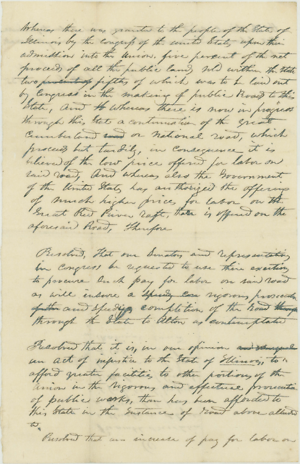 Whereas there was granted to the people of the State of
Illinois by the congress of the united State, upon their
admission into the Union, five percent of the net
proceeds of all the public land, sold within the State
two fifths of which was to be laid out
by Congress in the making of public Road to this
State, And Whereas there is now in progress
through this State a continuation of the Great
Cumberland or National road, which
proceeds but tardily, in consequence it is
believed of the low price offered for labor on
said road, And whereas also the Government
of the United States, has authorized the offering
of much higher prices for labor on the
Great Red River raft, than is offered on the
aforesaid Road, Therefore
Resolved, that our Senators and representatives
in Congress be requested to use their exertion
to procure such pay for labor on said road
as will insure a vigorous prosecution
and speedy completion of the Road
through the State to Alton as contemplated
Resolved that it is, in our opinion
an act of injustice to the State of Illinois, to
afford greater facilities to other portions of the
Union in the vigorous and effectual prosecution
of public works, than has been afforded to
this State in the instance of Road above alluded
to
Resolved that an increase of pay for labor on